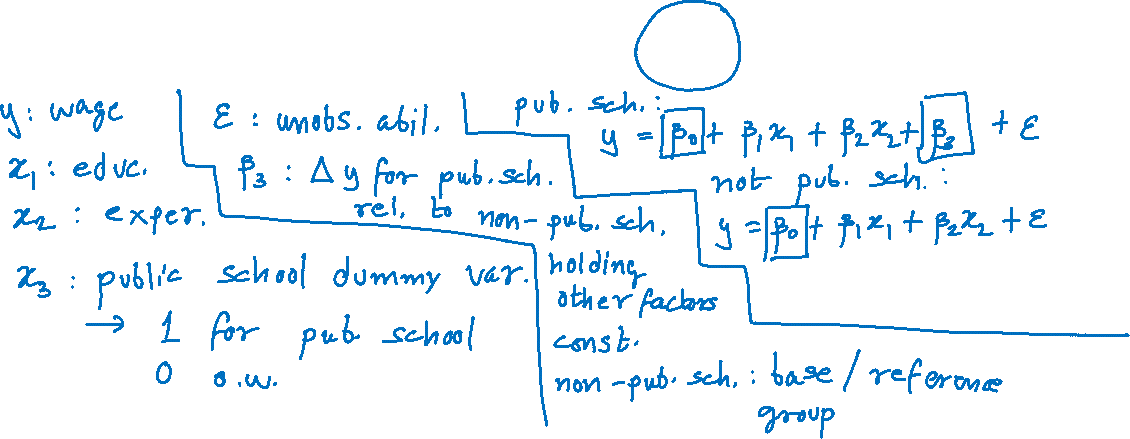 y : wage
x₁ : educ.
x₂ : exper.
x₃ : public school dummy var.
→ 1 for pub. school
0 o.w.
ε : unobs. abil.
β₃ : Δ y for pub. sch.
rel. to non-pub. sch.
holding
other factors
const.
non-pub. sch. : base / reference
group
pub. sch. :
y = β₀ + β₁x₁ + β₂x₂ + β₃ + ε
not pub. sch. :
y = β₀ + β₁x₁ + β₂x₂ + ε